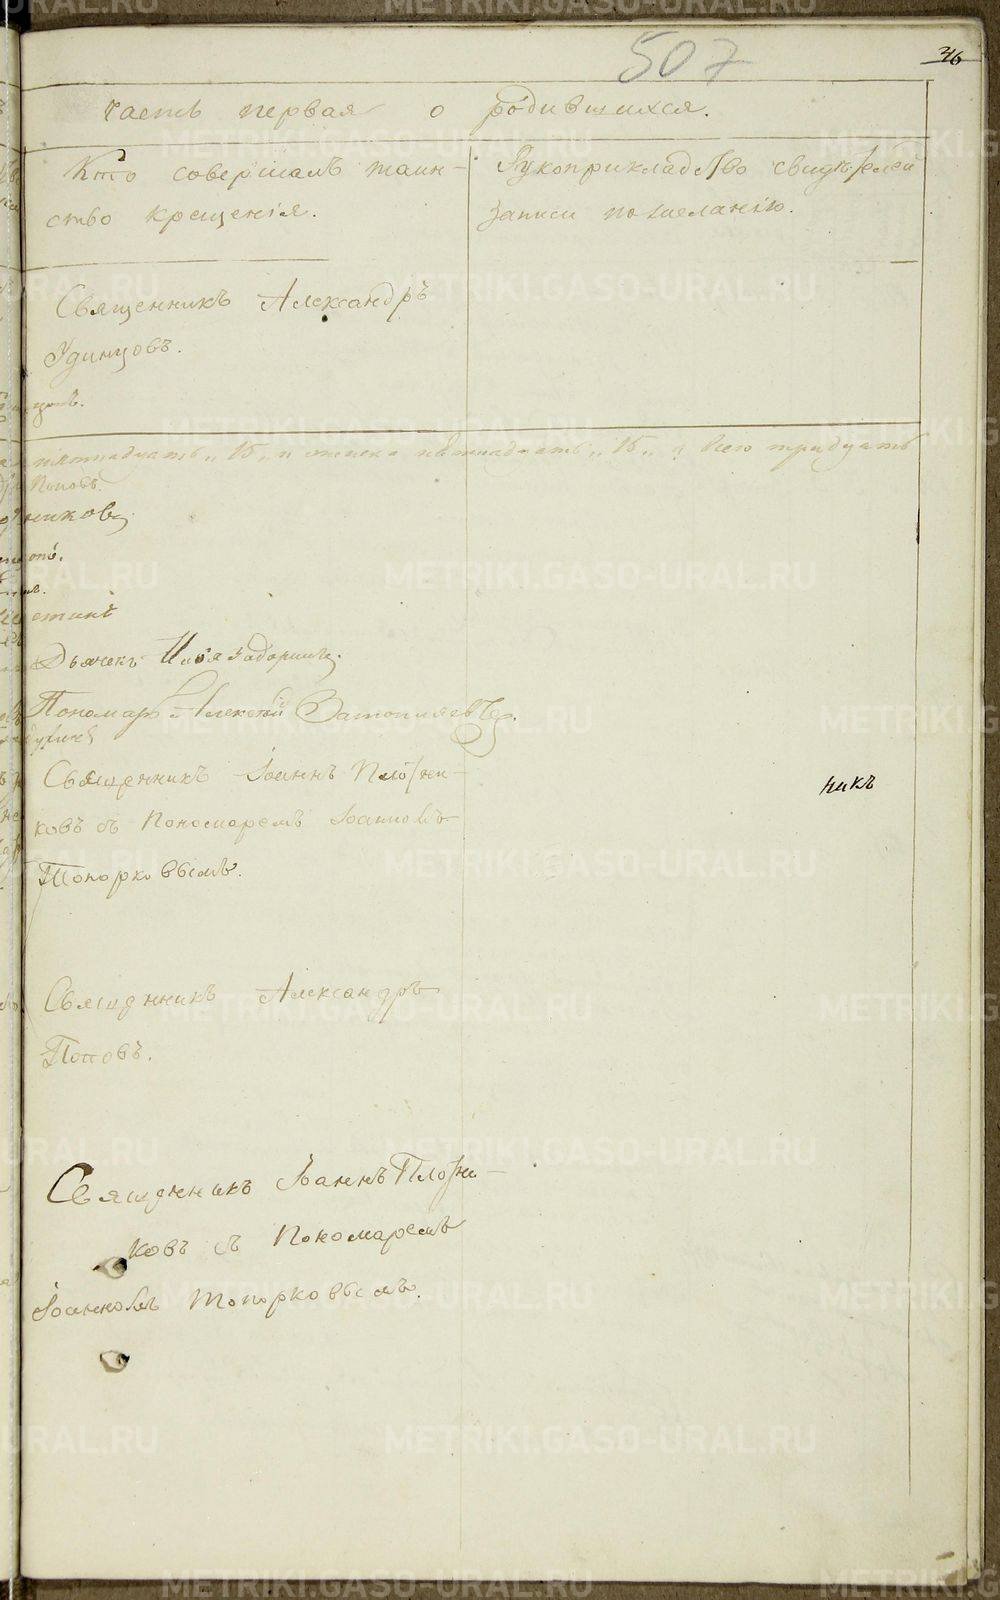 507
36
Часть первая о родившихся.
Кто совершалъ таин-
ство крещенія.
Рукоприкладство свидѣтелей
записи по желанію.
Священникъ Александръ
Удинцовъ.
пятнадцать „15„ и женска пятнадцать „15„ и всего тридцать
Поповъ.
никовъ
Дьячекъ Илья Задоринъ.
Пономарь Алексѣй
Священникъ Іоаннъ Плотни-
ковъ съ Пономаремъ Іоанномъ
Топорковымъ.
никъ
Священникъ Александръ
Поповъ.
Священникъ Іоаннъ Плотни-
ковъ съ Пономаремъ
Іоанномъ Топорковымъ.
METRIKI.GASO-URAL.RU